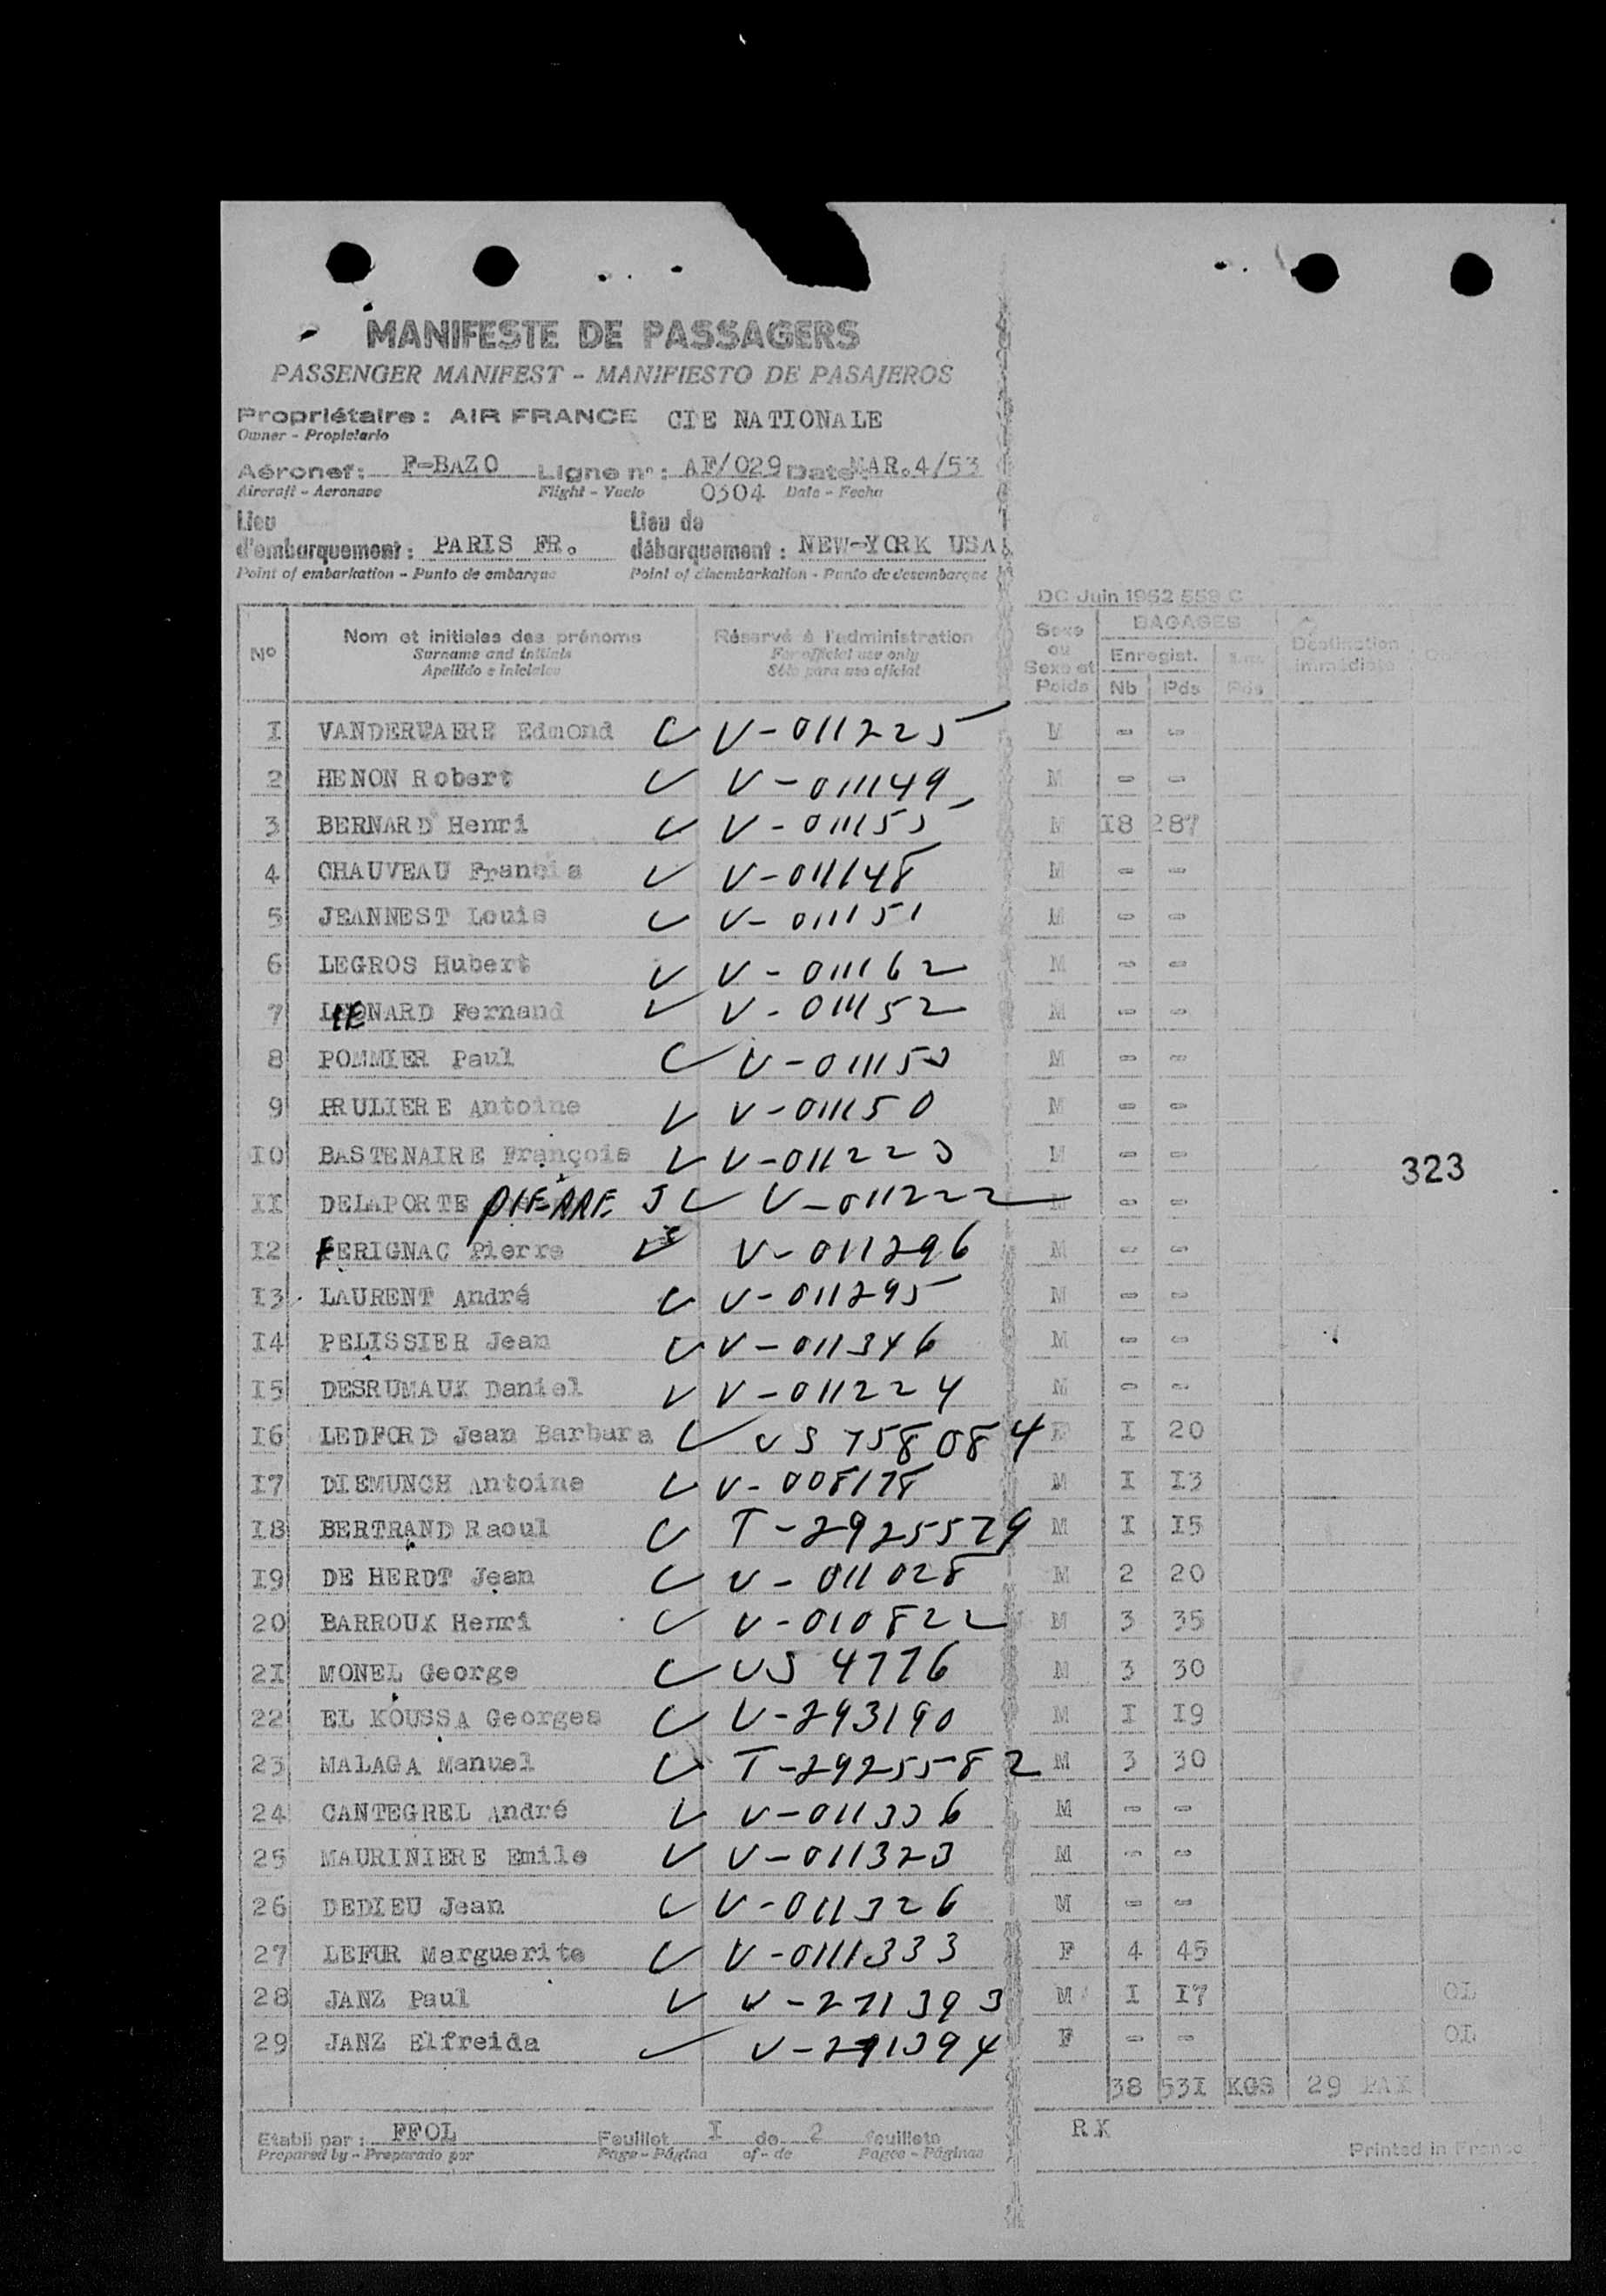 MANIFESTE DE PASSAGERS
PASSENGER MANIFEST - MANIFIESTO DE PASAJEROS
Propriétaire : AIR FRANCE CIE NATIONALE
Owner - Propietario
Aéronef : F-BAZO Ligne n° : AF/029 Date MAR.4/53
Aircraft - Aeronave Flight - Vuelo 0304 Date - Fecha
Lieu d'embarquement : PARIS FR. Lieu de débarquement : NEW-YORK USA
Point of embarkation - Punto de embarque Point of disembarkation - Punto de desembarque
DC Juin 1952 559 C
N° Nom et initiales des prénoms Réservé à l'administration Sexe ou Sexe et Poids BAGAGES Destination immédiate
Surname and initials For official use only Enregist.
Apellido e iniciales Sólo para uso oficial Nb Pds Pds
1 VANDERWAERE Edmond V-011225 M - -
2 HENON Robert V-011149 M - -
3 BERNARD Henri V-011155 M 18 287
4 CHAUVEAU Francis V-011148 M - -
5 JEANNEST Louis V-011151 M - -
6 LEGROS Hubert V-011162 M - -
7 LEONARD Fernand V-011152 M - -
8 POMMIER Paul V-011153 M - -
9 PRULIERE Antoine V-011150 M - -
10 BASTENAIRE François V-011223 M - -
323
11 DELAPORTE PIERRE J V-011222 M - -
12 FERIGNAC Pierre V-011296 M - -
13 LAURENT André V-011295 M - -
14 PELISSIER Jean V-011346 M - -
15 DESRUMAUX Daniel V-011224 M - -
16 LEDFORD Jean Barbara US 758084 F I 20
17 DIEMUNCH Antoine V-008178 M I I3
18 BERTRAND Raoul T-2925579 M I I5
19 DE HERDT Jean V-011028 M 2 20
20 BARROUX Henri V-010822 M 3 35
21 MONEL George US 4776 M 3 30
22 EL KOUSSA Georges V-293190 M I I9
23 MALAGA Manuel T-2925582 M 3 30
24 CANTEGREL André V-011336 M - -
25 MAURINIERE Emile V-011323 M - -
26 DEDIEU Jean V-011326 M - -
27 LEFUR Marguerite V-0111333 F 4 45
28 JANZ Paul V-271393 M I I7 OL
29 JANZ Elfreida V-271394 F - - OL
38 53I KGS 29 PAX
Etabli par : FFOL Feuillet I de 2 feuillets RK
Prepared by - Preparado por Page - Página of - de Pages - Páginas Printed in France